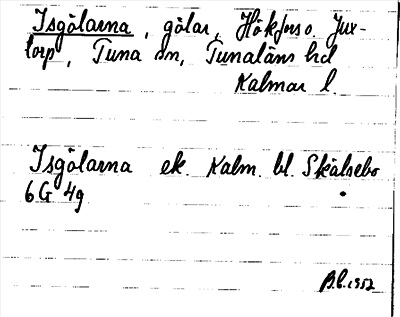 Isgölarna, gölar, Hökfors o. Jux-
torp, Tuna sn, Tunaläns hd
Kalmar l.
Isgölarna ek. Kalm. bl. Skälsebo
6G 4g
B.C. 1952